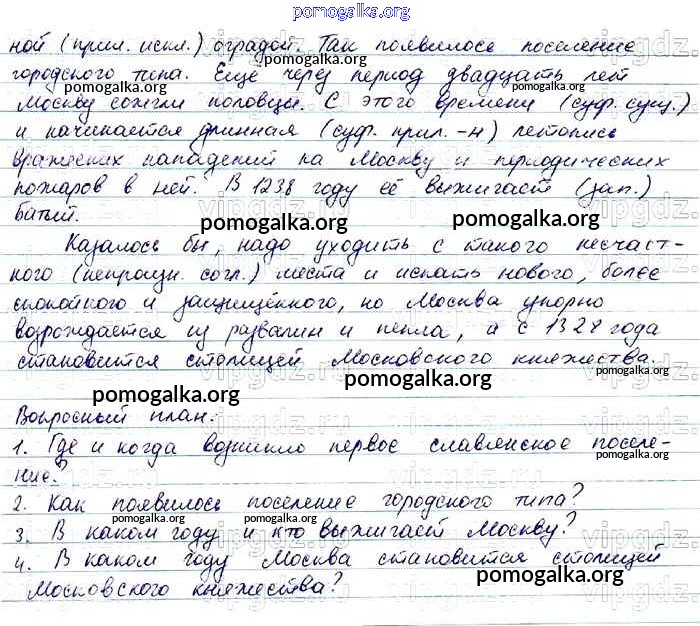 pomogalka.org
ной (прил. искл.) оградой. Так появилось поселение
городского типа. Ещё через период двадцать лет
pomogalka.org
Москву сожгли половцы. С этого времени (суф. сущ.)
и начинается длинная (суф. прил. -н) летопись
вражеских нападений на Москву и периодических
пожаров в ней. В 1238 году её выжигает (зап.)
Батый.
pomogalka.org
pomogalka.org
Казалось бы, надо уходить с такого несчаст-
ного (непроизн. согл.) места и искать нового, более
спокойного и защищённого, но Москва упорно
возрождается из развалин и пепла, а с 1328 года
становится столицей Московского княжества.
pomogalka.org
pomogalka.org
Вопросный план:
1. Где и когда возникло первое славянское поселе-
ние?
pomogalka.org
pomogalka.org
2. Как появилось поселение городского типа?
pomogalka.org
pomogalka.org
3. В каком году и кто выжигает Москву?
pomogalka.org
4. В каком году Москва становится столицей
Московского княжества?
pomogalka.org